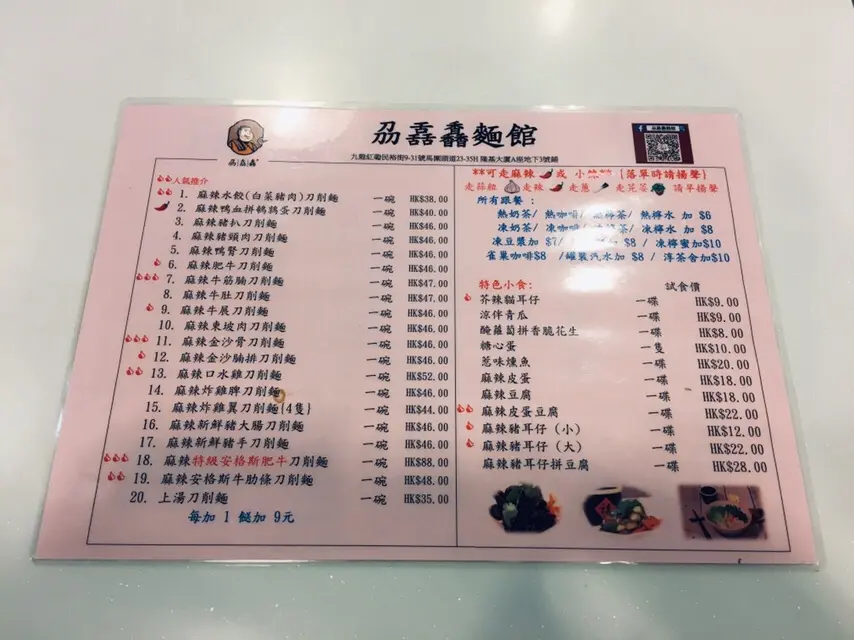 刕嚞馫麵館
九龍紅磡民裕街9-31號馬團頭道23-35H 隆基大廈A座地下3號鋪
人氣推介
1. 麻辣水餃(白菜豬肉)刀削麵 一碗 HK$38.00
2. 麻辣鴨血拼鵪鶉蛋刀削麵 一碗 HK$40.00
3. 麻辣豬扒刀削麵 一碗 HK$46.00
4. 麻辣豬頸肉刀削麵 一碗 HK$46.00
5. 麻辣鴨腎刀削麵 一碗 HK$46.00
6. 麻辣肥牛刀削麵 一碗 HK$46.00
7. 麻辣牛筋腩刀削麵 一碗 HK$47.00
8. 麻辣牛肚刀削麵 一碗 HK$47.00
9. 麻辣牛展刀削麵 一碗 HK$46.00
10. 麻辣東坡肉刀削麵 一碗 HK$46.00
11. 麻辣金沙骨刀削麵 一碗 HK$46.00
12. 麻辣金沙腩排刀削麵 一碗 HK$46.00
13. 麻辣口水雞刀削麵 一碗 HK$52.00
14. 麻辣炸雞脾刀削麵 一碗 HK$46.00
15. 麻辣炸雞翼刀削麵{4隻} 一碗 HK$44.00
16. 麻辣新鮮豬大腸刀削麵 一碗 HK$46.00
17. 麻辣新鮮豬手刀削麵 一碗 HK$46.00
18. 麻辣特級安格斯肥牛刀削麵 一碗 HK$88.00
19. 麻辣安格斯牛肋條刀削麵 一碗 HK$48.00
20. 上湯刀削麵 一碗 HK$35.00
每加 1 餸加 9元
**可走麻辣 或 小 {落單時請揚聲}
走蒜蓉 走辣 走蔥 走芫荽 請早揚聲
所有跟餐：
熱奶茶/ 熱咖啡/ 茶/ 熱檸水 加 $6
凍奶茶/ 凍咖 茶/ 凍檸水 加 $8
凍豆漿加 $7/ $8 / 凍檸蜜加$10
雀巢咖啡$8 /罐裝汽水加 $8 / 淳茶舍加$10
特色小食: 試食價
芥辣貓耳仔 一碟 HK$9.00
涼伴青瓜 一碟 HK$9.00
醃蘿蔔拼香脆花生 一碟 HK$8.00
糖心蛋 一隻 HK$10.00
惹味燻魚 一碟 HK$20.00
麻辣皮蛋 一碟 HK$18.00
麻辣豆腐 一碟 HK$18.00
麻辣皮蛋豆腐 一碟 HK$22.00
麻辣豬耳仔 (小) 一碟 HK$12.00
麻辣豬耳仔 (大) 一碟 HK$22.00
麻辣豬耳仔拼豆腐 一碟 HK$28.00